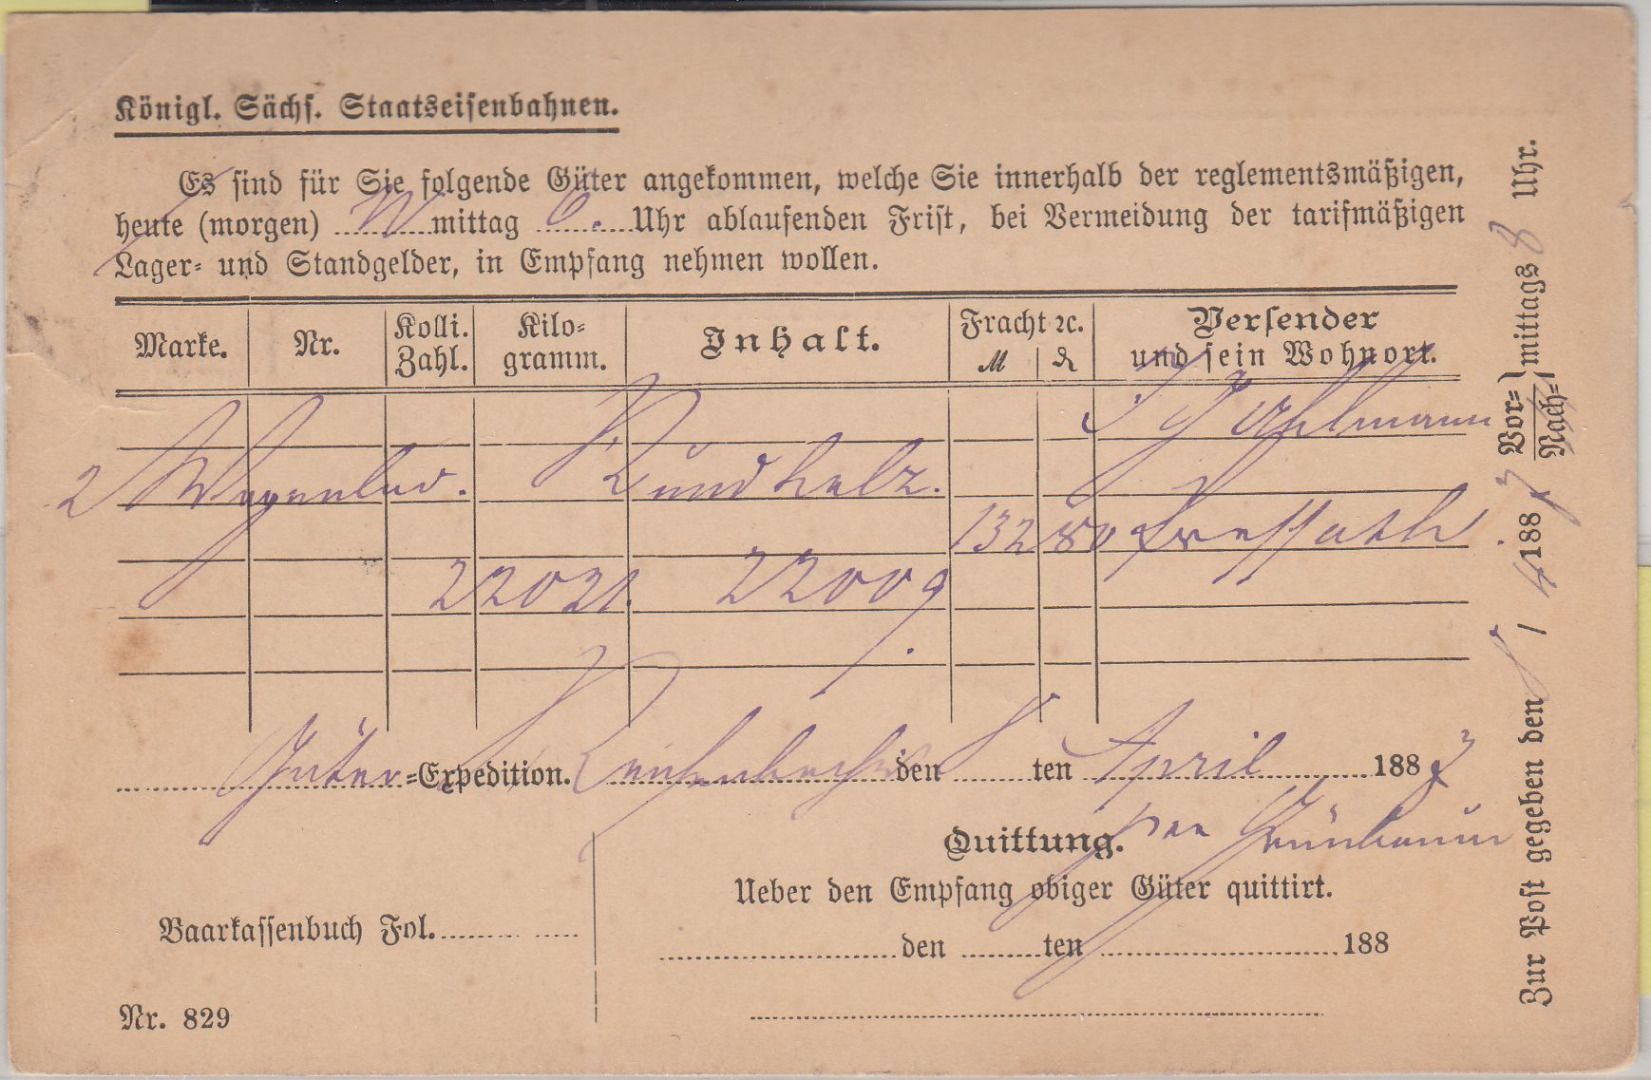 Königl. Sächs. Staatseisenbahnen.
Es sind für Sie folgende Güter angekommen, welche Sie innerhalb der reglementsmäßigen,
heute (morgen) N mittag 6. Uhr ablaufenden Frist, bei Vermeidung der tarifmäßigen
Lager- und Standgelder, in Empfang nehmen wollen.
Marke. Nr. Kolli. Zahl. Kilo- gramm. Inhalt. Fracht ꝛc. M ₰ Versender und sein Wohnort.
2 Wagenlad. Rundholz.
132 80
22021. 22009
Güter-Expedition. Reichenbach den ten April 1887
Quittung.
Ueber den Empfang obiger Güter quittirt.
Baarkassenbuch Fol.
den ten 188
Nr. 829
Zur Post gegeben den / 4 1887 Vor- Nach- mittags 8 Uhr.